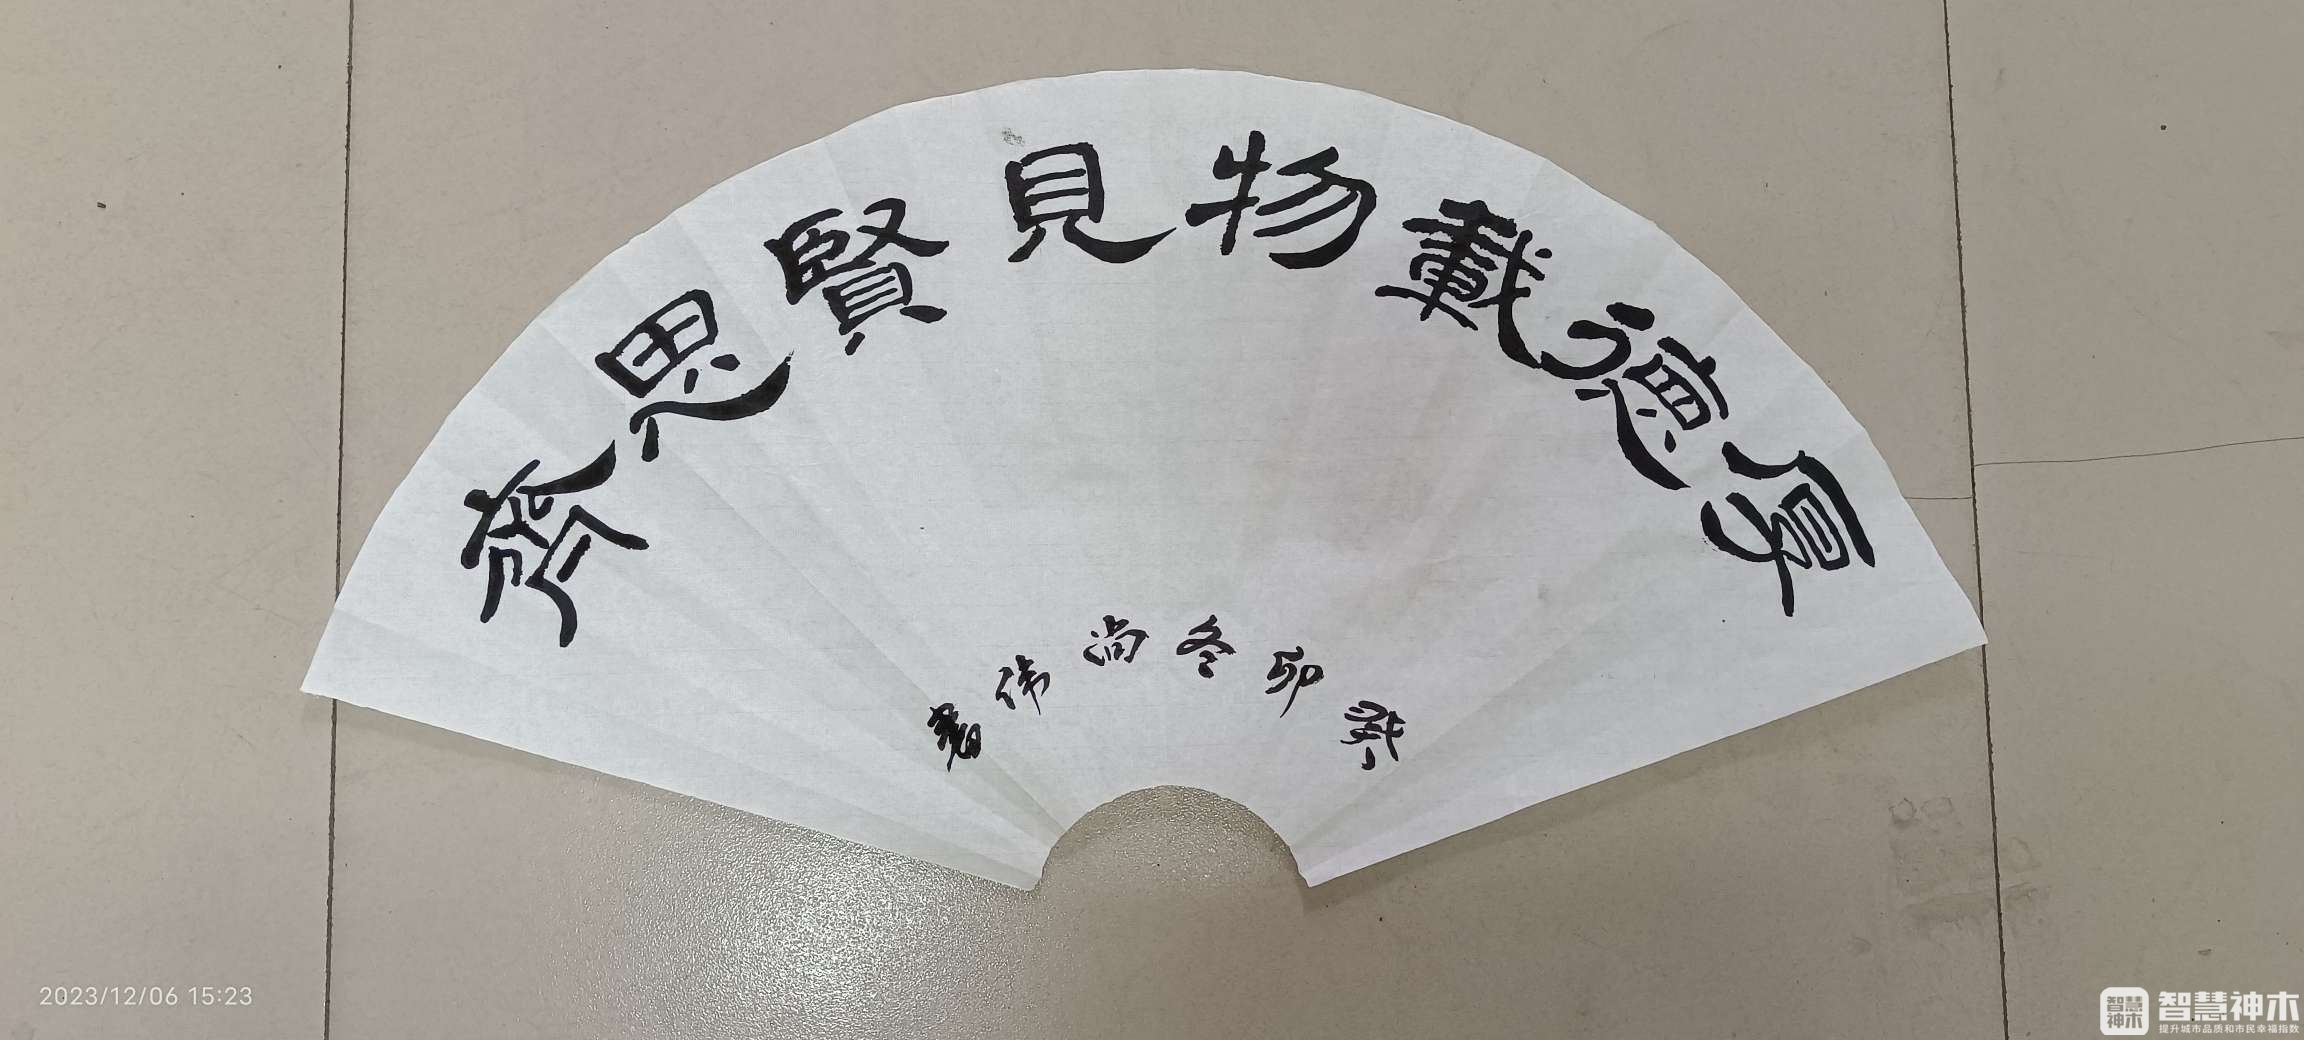 厚德載物見賢思齊
癸卯冬尚伟書
2023/12/06 15:23
智慧神木
智慧神木
提升城市品质和市民幸福指数